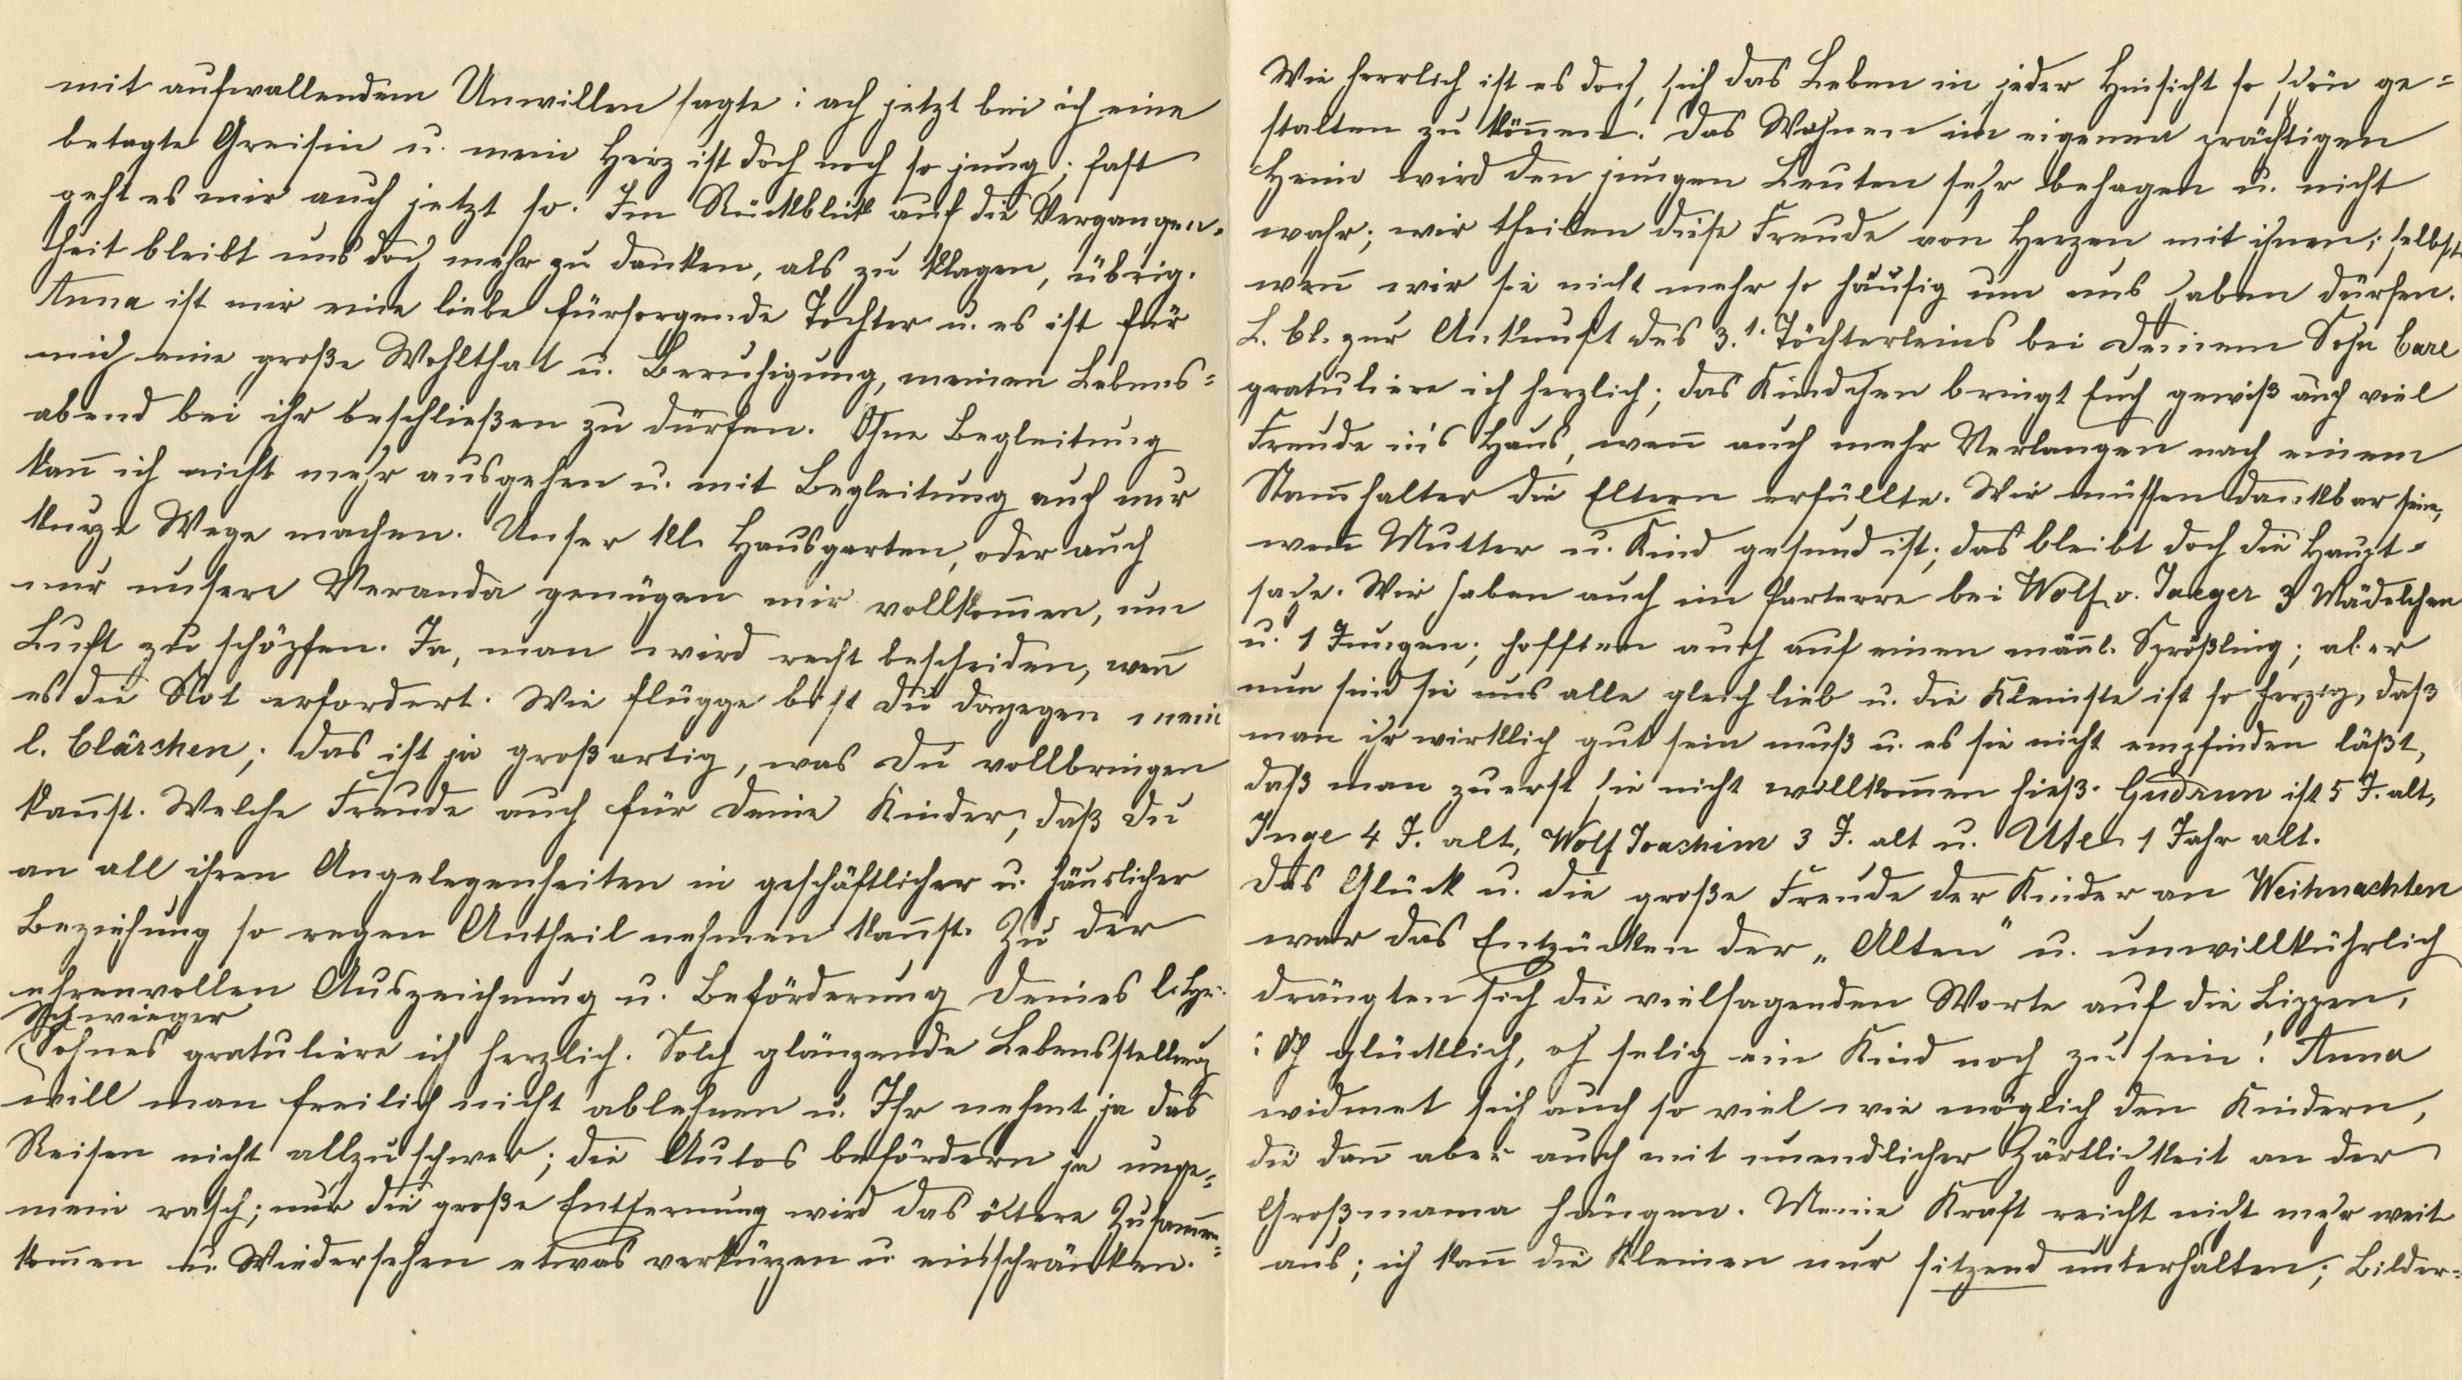 mit aufwallendem Unwillen sagte: ach jetzt bin ich eine
betagte Greisin u. mein Herz ist doch noch so jung; fast
geht es mir auch jetzt so. Im Rückblick auf die Vergangen-
heit bleibt uns doch mehr zu danken, als zu klagen, übrig.
Anna ist mir eine liebe fürsorgende Tochter u. es ist für
mich eine große Wohlthat u. Beruhigung, meinen Lebens=
abend bei ihr beschließen zu dürfen. Ohne Begleitung
kann̄ ich nicht mehr ausgehen u. mit Begleitung auch nur
kurze Wege machen. Unser kl. Hausgarten, oder auch
nur unsere Veranda genügen mir vollkom̄en, um
Luft zu schöpfen. Ja, man wird recht bescheiden, wen̄
es die Not erfordert. Wie flügge bist Du dagegen mein
l. Clärchen; das ist ja großartig, was Du vollbringen
kan̄st. Welche Freude auch für Deine Kinder, daß Du
an all ihren Angelegenheiten in geschäftlicher u. häuslicher
Beziehung so regen Antheil nehmen kan̄st. Zu der
ehrenvollen Auszeichnung u. Beförderung Deines l. Hr.
Schwieger
Sohnes gratuliere ich herzlich. Solch glänzende Lebensstellung
will man freilich nicht ablehnen u. Ihr nehmt ja das
Reisen nicht allzu schwer; die Autos befördern ja unge=
mein rasch; nur die große Entfernung wird das öftere Zusam̄en=
kom̄en u. Wiedersehen etwas verkürzen u. einschränken.
Wie herrlich ist es doch, sich das Leben in jeder Hinsicht so schön ge=
stalten zu kön̄en. Das Wohnen im eigenen prächtigen
Heim wird den jungen Leuten sehr behagen u. nicht
wahr; wir theilen diese Freude von Herzen mit ihnen; selbst
wen̄ wir sie nicht mehr so häufig um uns haben dürfen.
L. Cl. zur Ankunft des 3.t. Töchterleins bei Deinem Sohn Carl
gratuliere ich herzlich; das Kindchen bringt Euch gewiß auch viel
Freude in's Haus, wen̄ auch mehr Verlangen nach einem
Stam̄halter die Eltern erfüllte. Wir müssen dankbar sein,
wen̄ Mutter u. Kind gesund ist; das bleibt doch die Haupt=
sache. Wir haben auch im Parterre bei Wolf v. Jaeger 3 Mädelchen
u. 1 Jungen; hofften auch auf einen män̄l. Sprößling; aber
nun sind sie uns alle gleich lieb u. die Kleinste ist so herzig, daß
man ihr wirklich gut sein muß u. es sie nicht empfinden läßt,
daß man zuerst sie nicht willkom̄en hieß. Gudrun ist 5 J. alt,
Inge 4 J. alt, Wolf Joachim 3 J. alt u. Ute 1 Jahr alt.
Das Glück u. die große Freude der Kinder an Weihnachten
war das Entzücken der „Alten" u. unwillkührlich
drängten sich die vielsagenden Worte auf die Lippen,
: Oh glücklich, oh selig ein Kind noch zu sein! Anna
widmet sich auch so viel wie möglich den Kindern,
die dan̄ aber auch mit unendlicher Zärtlichkeit an der
Großmama hängen. Meine Kraft reicht nicht mehr weit
aus; ich kan̄ die Kleinen nur sitzend unterhalten; Bilder=